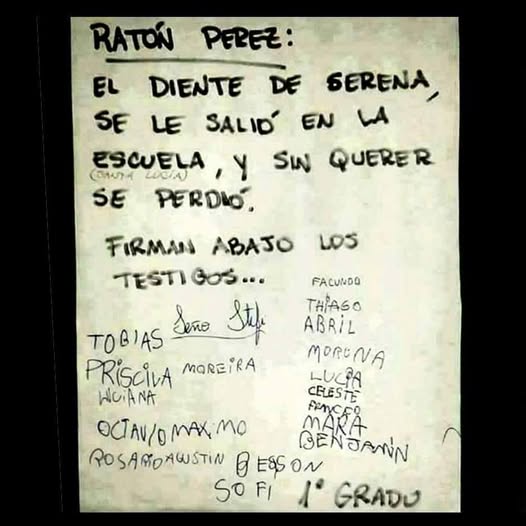 RATÓN PEREZ:
EL DIENTE DE SERENA,
SE LE SALIÓ EN LA
ESCUELA, Y SIN QUERER
(SANTA LUCÍA)
SE PERDIÓ.
FIRMAN ABAJO LOS
TESTIGOS...
FACUNDO
THIAGO
Seño Stefi
ABRIL
TOBIAS
MORENA
PRISCILA MOREIRA
LUCIA
LUCIANA
CELESTE
MARA
OCTAVIO MAXIMO
BENJAMIN
ROSARIO AGUSTIN
SOFI
1° GRADO